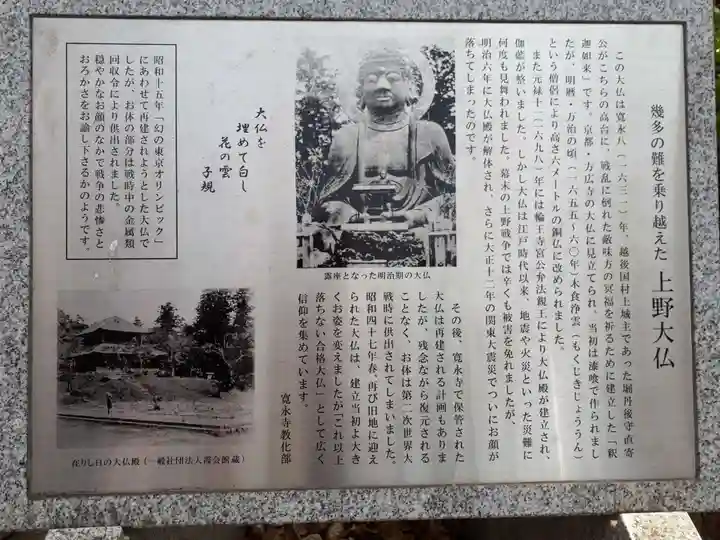 幾多の難を乗り越えた 上野大仏
この大仏は寛永八(一六三一)年、越後国村上城主であった堀丹後守直寄
公がこちらの高台に、戦乱に倒れた敵味方の冥福を祈るために建立した「釈
迦如来」です。京都・方広寺の大仏に見立てられ、当初は漆喰で作られまし
たが、明暦・万治の頃(一六五五~六〇年)木食浄雲(もくじきじょううん)
という僧侶により高さ六メートルの銅仏に改められました。
また元禄十一(一六九八)年には輪王寺宮公弁法親王により大仏殿が建立され、
伽藍が整いました。しかし大仏は江戸時代以来、地震や火災といった災難に
何度も見舞われました。幕末の上野戦争では辛くも被害を免れましたが、
明治六年に大仏殿が解体され、さらに大正十二年の関東大震災でついにお顔が
落ちてしまったのです。
露座となった明治期の大仏
その後、寛永寺で保管された
大仏は再建される計画もありま
したが、残念ながら復元される
ことなく、お体は第二次世界大
戦時に供出されてしまいました。
昭和四十七年春、再び旧地に迎え
られた大仏は、建立当初よ大き
くお姿を変えましたが「これ以上
落ちない合格大仏」として広く
信仰を集めています。
寛永寺教化部
大仏を
埋めて白し
花の雲
子規
昭和十五年「幻の東京オリンピック」
にあわせて再建されようとした大仏で
したが、お体の部分は戦時中の金属類
回収令により供出されました。
穏やかなお顔のなかで戦争の悲惨さと
おろかさをお諭し下さるかのようです。
在りし日の大仏殿(一般社団法人霞会館蔵)